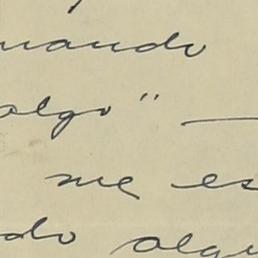 mando
algo" —
me es
do algu